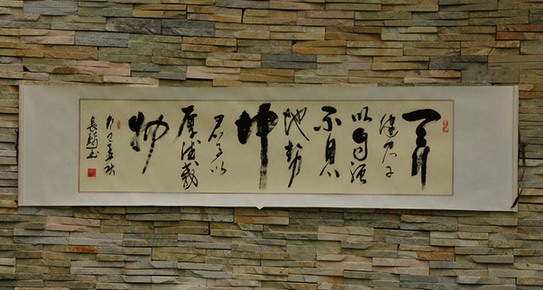 天行
健君子
以自強
不息
地勢
坤
君子以
厚德載
物